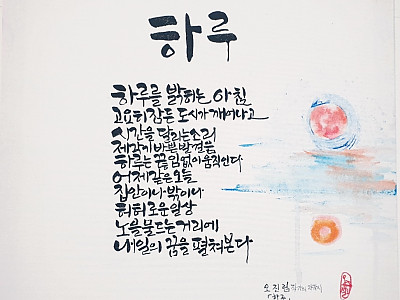 하루
하루를 밝히는 아침
고요히 잠든 도시가 깨어나고
시간을 달리는 소리
제각기 바쁜 발걸음
하루는 끊임없이 움직인다
어제같은 오늘
집안이나 밖이나
허허로운 일상
노을 물드는 거리에
내일의 꿈을 펼쳐본다
오진림
「하루」